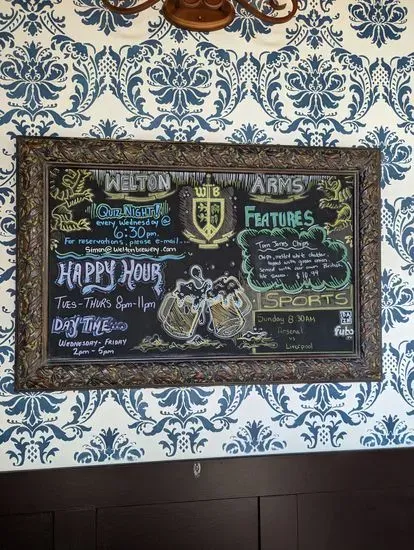 WELTON ARMS
WB
QUIZ NIGHT!
every Wednesday @
6:30 pm
For reservations, please e-mail...
Simon@weltonbrewery.com
HAPPY HOUR
TUES-THURS 8pm-11pm
DAYTIME
WEDNESDAY-FRIDAY
2pm - 5pm
FEATURES
Tom Jones Chips
Chips, melted white cheddar,
topped with green onion
Served with our own British
Isle Sauce
$10.99
SPORTS
Sunday 8:30AM
Arsenal
vs
Liverpool
DAZN
fubo